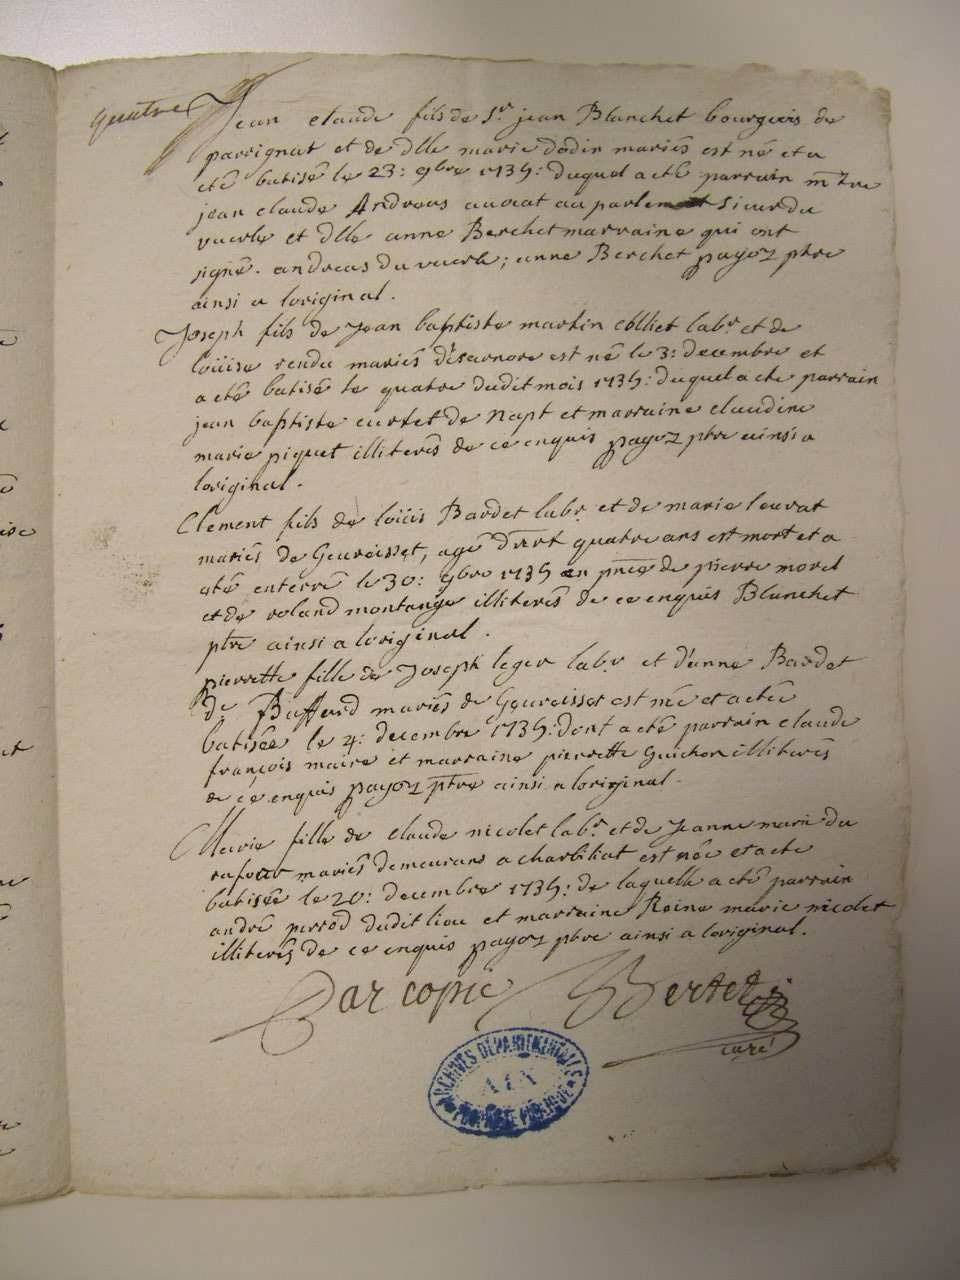 quatre
Jean claude fils de Sr jean Blanchet bourgeois de
parrignat et de dlle marie dodin mariés est né et a
eté batisé le 23: 9bre 1735: duquel a eté parrain mtre
jean claude Andreas avocat au parlement sieur du
vuerle et dlle anne Berchet marraine qui ont
signé. andreas du vuerle; anne Berchet payoz ptre
ainsi a loriginal.
Joseph fils de Jean baptiste martin collict labr et de
loüise rendu mariés d'Esarnore est né le 3: decembre et
a eté batisé le quatre dudit mois 1735: duquel a eté parrain
jean baptiste curtet de Napt et marraine claudine
marie piquet illiterés de ce enquis payoz ptre ainsi a
loriginal.
Clement fils de loüis Bardet labr et de marie leurat
mariés de Geuroisset, agé quatre ans est mort et a
eté enterré le 30: 9bre 1735 en pnce de pierre morel
et de roland montange illiterés de ce enquis Blanchet
ptre ainsi a loriginal.
pierrette fille de Joseph leger labr et d'anne Bardet
de Buffard mariés de Geuroisset est née et a eté
batisée le 4: decembre 1735: dont a eté parrain claude
françois maire et marraine pierrette Guichon illiterés
de ce enquis payoz ptre ainsi a loriginal.
Marie fille de claude nicolet labr et de Jeanne marie du
rafour mariés demeurans a charbiliat est née et a eté
batisée le 20: decembre 1735: de laquelle a eté parrain
andré perrod dudit lieu et marraine Reine marie nicolet
illiterés de ce enquis payoz ptre ainsi a loriginal.
Par copie Bertet
curé
ARCHIVES DÉPARTEMENTALES
AIN
PROPRIÉTÉ PUBLIQUE